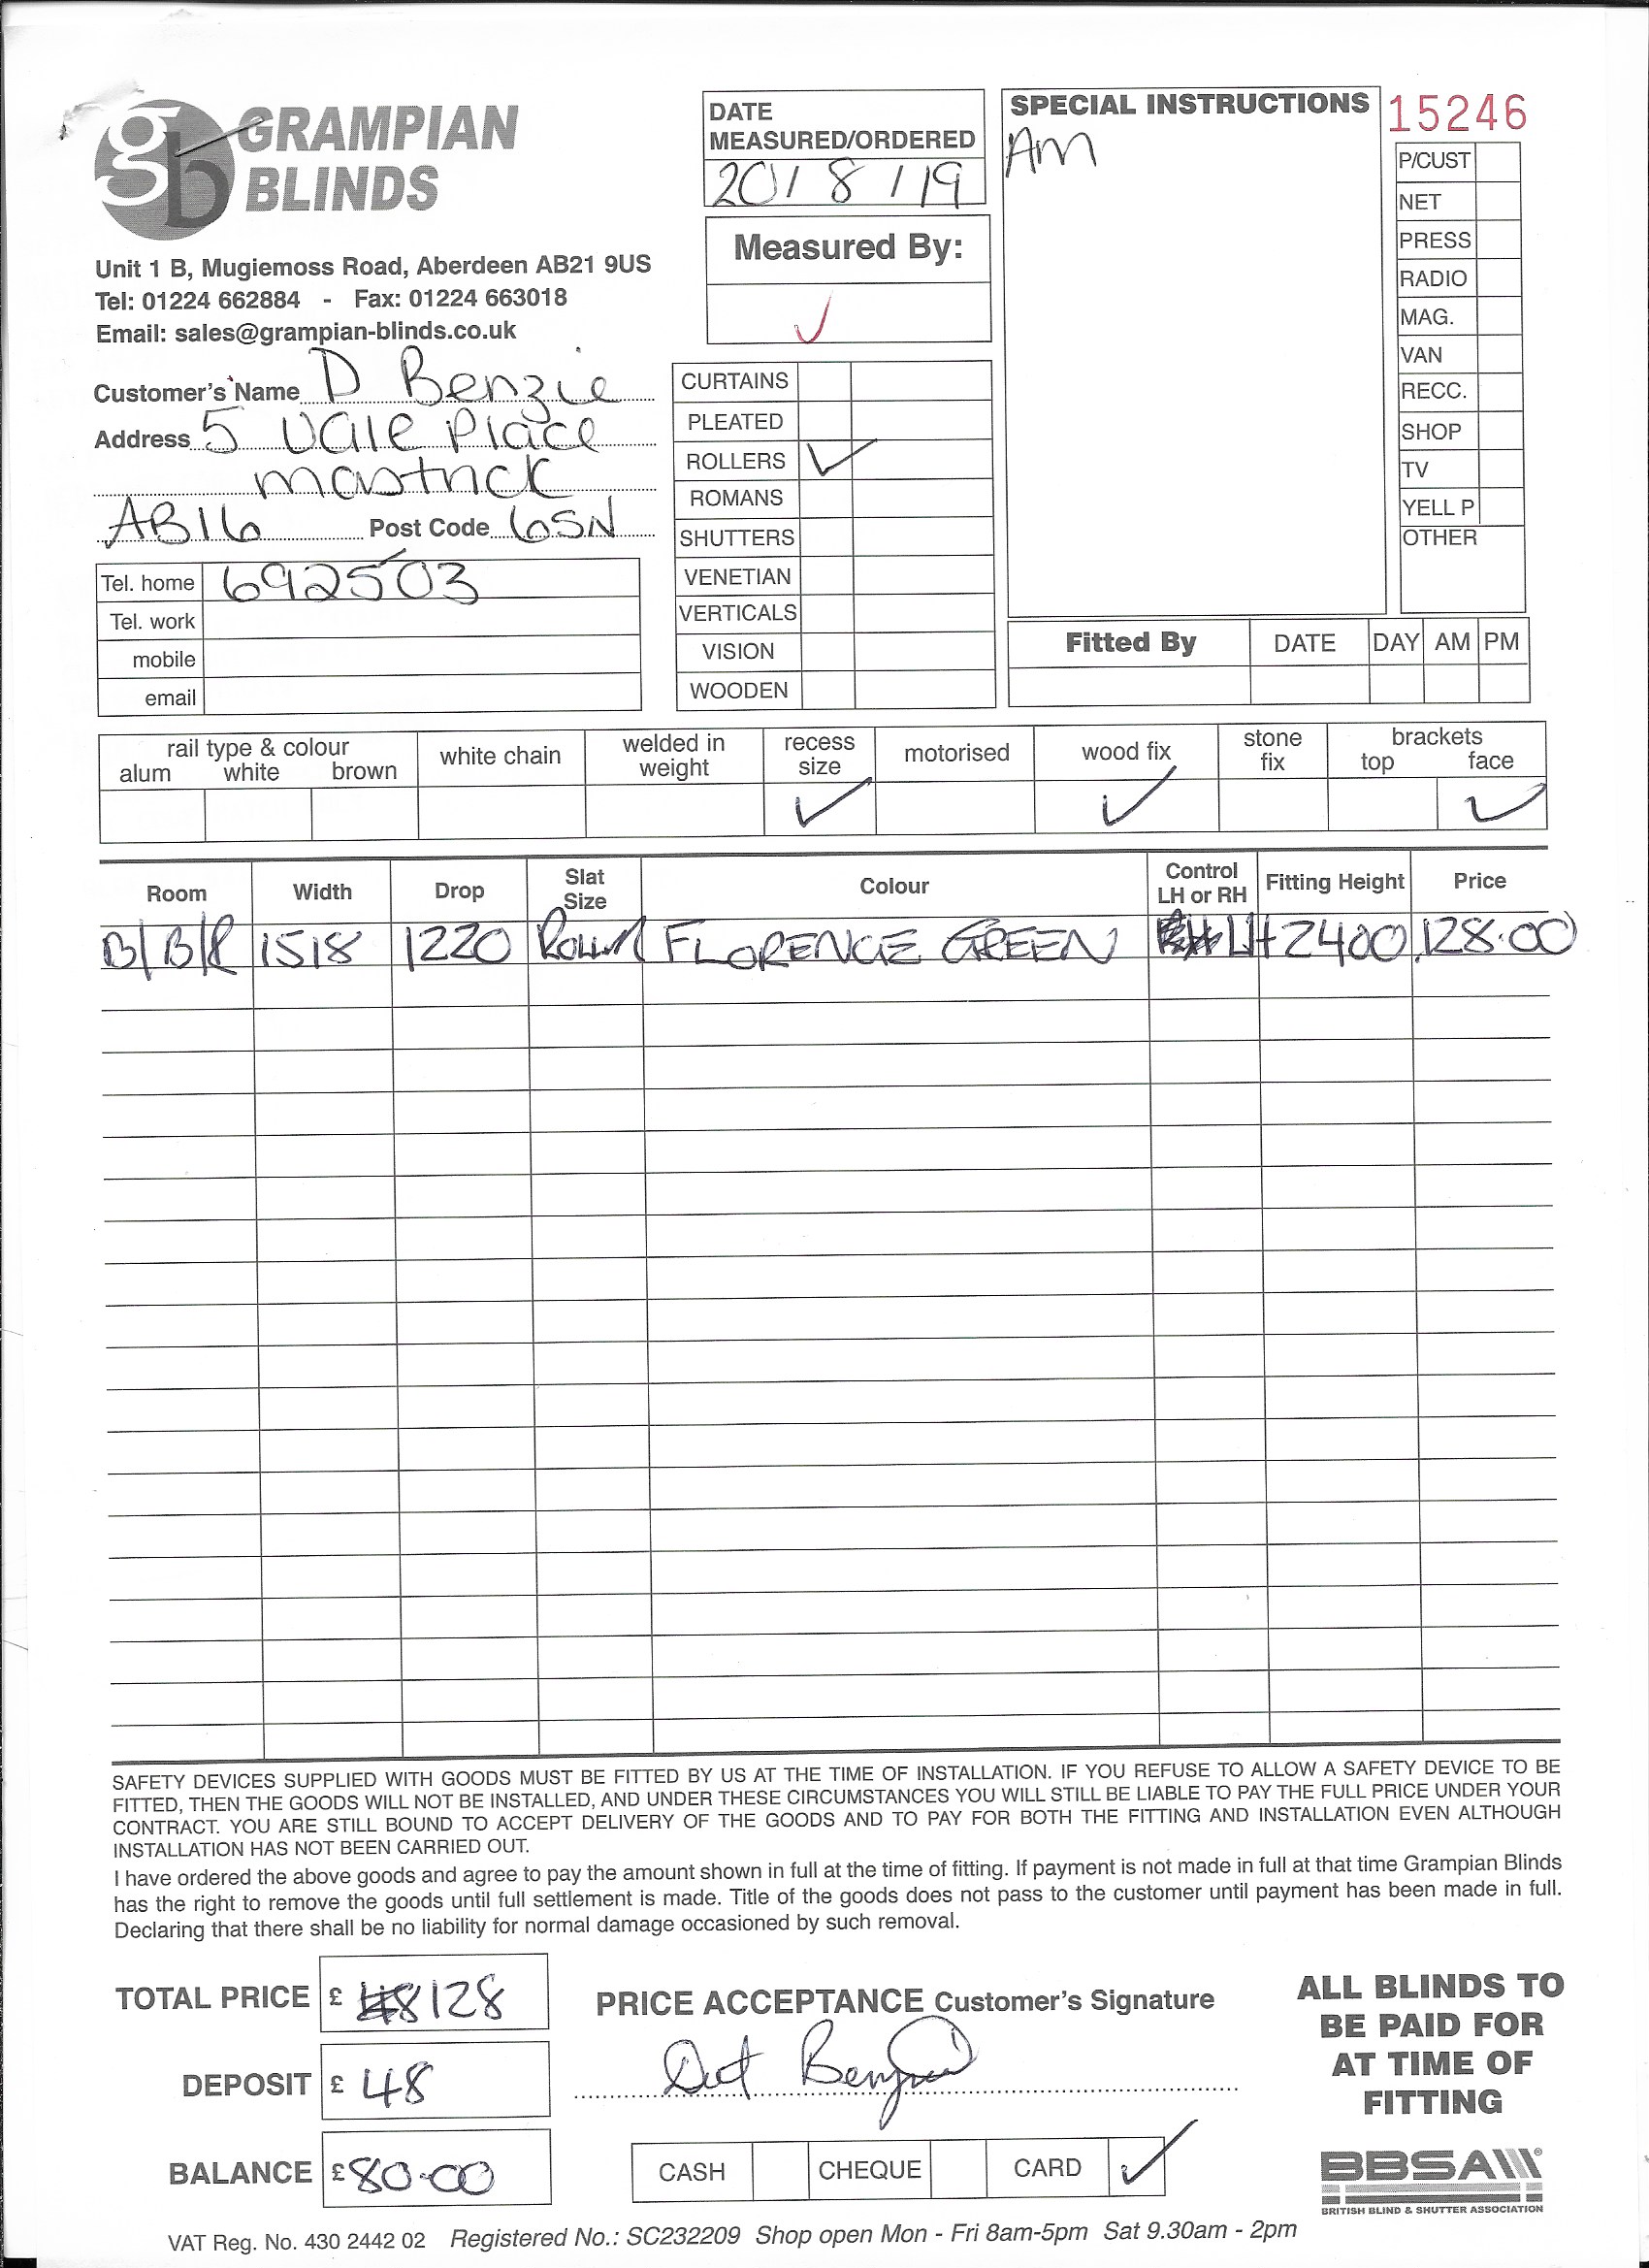 GRAMPIAN
BLINDS
Unit 1 B, Mugiemoss Road, Aberdeen AB21 9US
Tel: 01224 662884 - Fax: 01224 663018
Email: sales@grampian-blinds.co.uk
Customer's Name D Benzie
Address 5 Vale Place
Mastrick
AB16 Post Code 6SN
Tel. home 692503
Tel. work
mobile
email
DATE
MEASURED/ORDERED
20/8/19
Measured By:
CURTAINS
PLEATED
ROLLERS ✓
ROMANS
SHUTTERS
VENETIAN
VERTICALS
VISION
WOODEN
SPECIAL INSTRUCTIONS
AM
15246
P/CUST
NET
PRESS
RADIO
MAG.
VAN
RECC.
SHOP
TV
YELL P
OTHER
Fitted By DATE DAY AM PM
rail type & colour
alum white brown
white chain
welded in weight
recess size ✓
motorised
wood fix ✓
stone fix
brackets
top face ✓
Room Width Drop Slat Size Colour Control LH or RH Fitting Height Price
B/B/R 1518 1220 Roller FLORENCE GREEN LH 2400 128.00
SAFETY DEVICES SUPPLIED WITH GOODS MUST BE FITTED BY US AT THE TIME OF INSTALLATION. IF YOU REFUSE TO ALLOW A SAFETY DEVICE TO BE
FITTED, THEN THE GOODS WILL NOT BE INSTALLED, AND UNDER THESE CIRCUMSTANCES YOU WILL STILL BE LIABLE TO PAY THE FULL PRICE UNDER YOUR
CONTRACT. YOU ARE STILL BOUND TO ACCEPT DELIVERY OF THE GOODS AND TO PAY FOR BOTH THE FITTING AND INSTALLATION EVEN ALTHOUGH
INSTALLATION HAS NOT BEEN CARRIED OUT.
I have ordered the above goods and agree to pay the amount shown in full at the time of fitting. If payment is not made in full at that time Grampian Blinds
has the right to remove the goods until full settlement is made. Title of the goods does not pass to the customer until payment has been made in full.
Declaring that there shall be no liability for normal damage occasioned by such removal.
TOTAL PRICE £ 128
DEPOSIT £ 48
BALANCE £ 80.00
PRICE ACCEPTANCE Customer's Signature
CASH CHEQUE CARD ✓
ALL BLINDS TO
BE PAID FOR
AT TIME OF
FITTING
BBSA
BRITISH BLIND & SHUTTER ASSOCIATION
VAT Reg. No. 430 2442 02 Registered No.: SC232209 Shop open Mon - Fri 8am-5pm Sat 9.30am - 2pm